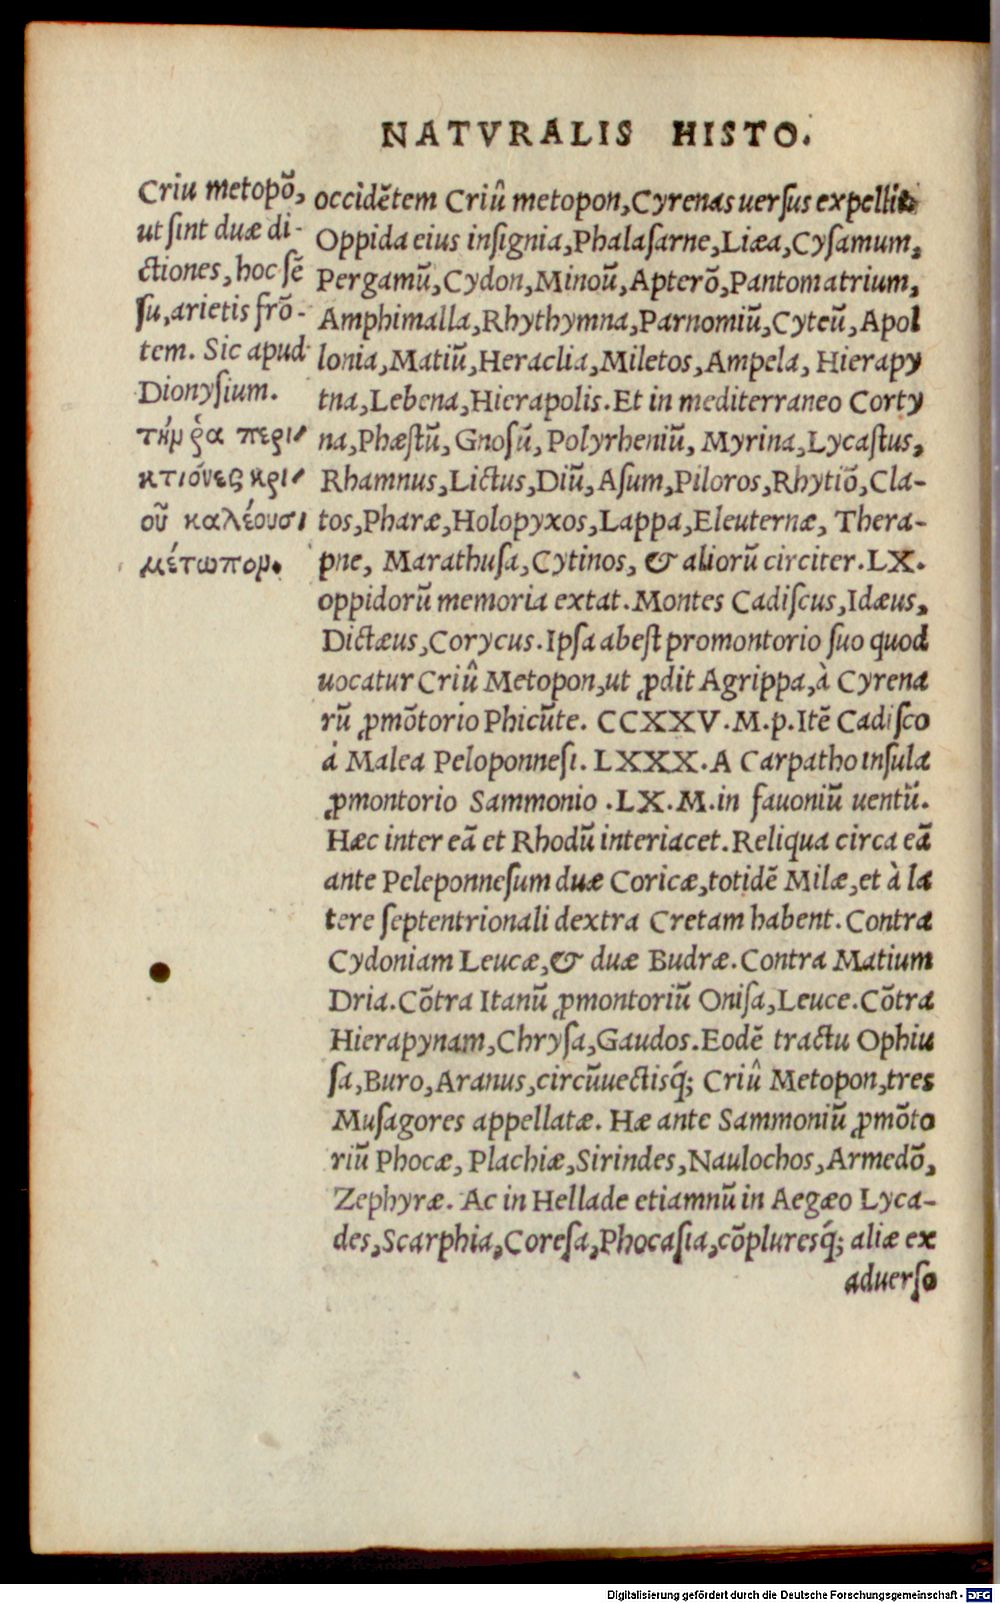 NATVRALIS HISTO.
Criu metopõ,
ut sint duæ di-
ctiones, hoc sẽ
su, arietis frõ-
tem. Sic apud
Dionysium.
τήμ ῥα περι
κτιόνες κρι
οῦ καλέουσι
μέτωπομ.
occidẽtem Criû metopon, Cyrenas uersus expellit
Oppida eius insignia, Phalasarne, Liæa, Cysamum,
Pergamũ, Cydon, Minoũ, Apterõ, Pantomatrium,
Amphimalla, Rhythymna, Parnomiũ, Cyteũ, Apol
lonia, Matiũ, Heraclia, Miletos, Ampela, Hierapy
tna, Lebena, Hierapolis. Et in mediterraneo Corty
na, Phæstũ, Gnosũ, Polyrheniũ, Myrina, Lycastus,
Rhamnus, Lictus, Diũ, Asum, Piloros, Rhytiõ, Cla-
tos, Pharæ, Holopyxos, Lappa, Eleuternæ, Thera-
pne, Marathusa, Cytinos, & aliorũ circiter. LX.
oppidorũ memoria extat. Montes Cadiscus, Idæus,
Dictæus, Corycus. Ipsa abest promontorio suo quod
uocatur Criû Metopon, ut ꝓdit Agrippa, à Cyrena
rũ ꝓmõtorio Phicũte. CCXXV. M. p. Itẽ Cadisco
à Malea Peloponnesi. LXXX. A Carpatho insula
ꝓmontorio Sammonio . LX. M. in fauoniũ uentũ.
Hæc inter eã et Rhodũ interiacet. Reliqua circa eã
ante Peleponnesum duæ Coricæ, totidẽ Milæ, et à la
tere septentrionali dextra Cretam habent. Contra
Cydoniam Leucæ, & duæ Budræ. Contra Matium
Dria. Cõtra Itanũ ꝓmontoriũ Onisa, Leuce. Cõtra
Hierapynam, Chrysa, Gaudos. Eodẽ tractu Ophiu
sa, Buro, Aranus, circũuectisq́; Criû Metopon, tres
Musagores appellatæ. Hæ ante Sammoniũ ꝓmõto
riũ Phocæ, Plachiæ, Sirindes, Naulochos, Armedõ,
Zephyræ. Ac in Hellade etiamnũ in Aegæo Lyca-
des, Scarphia, Coresa, Phocasia, cõpluresq́; aliæ ex
aduerso
Digitalisierung gefördert durch die Deutsche Forschungsgemeinschaft - DFG